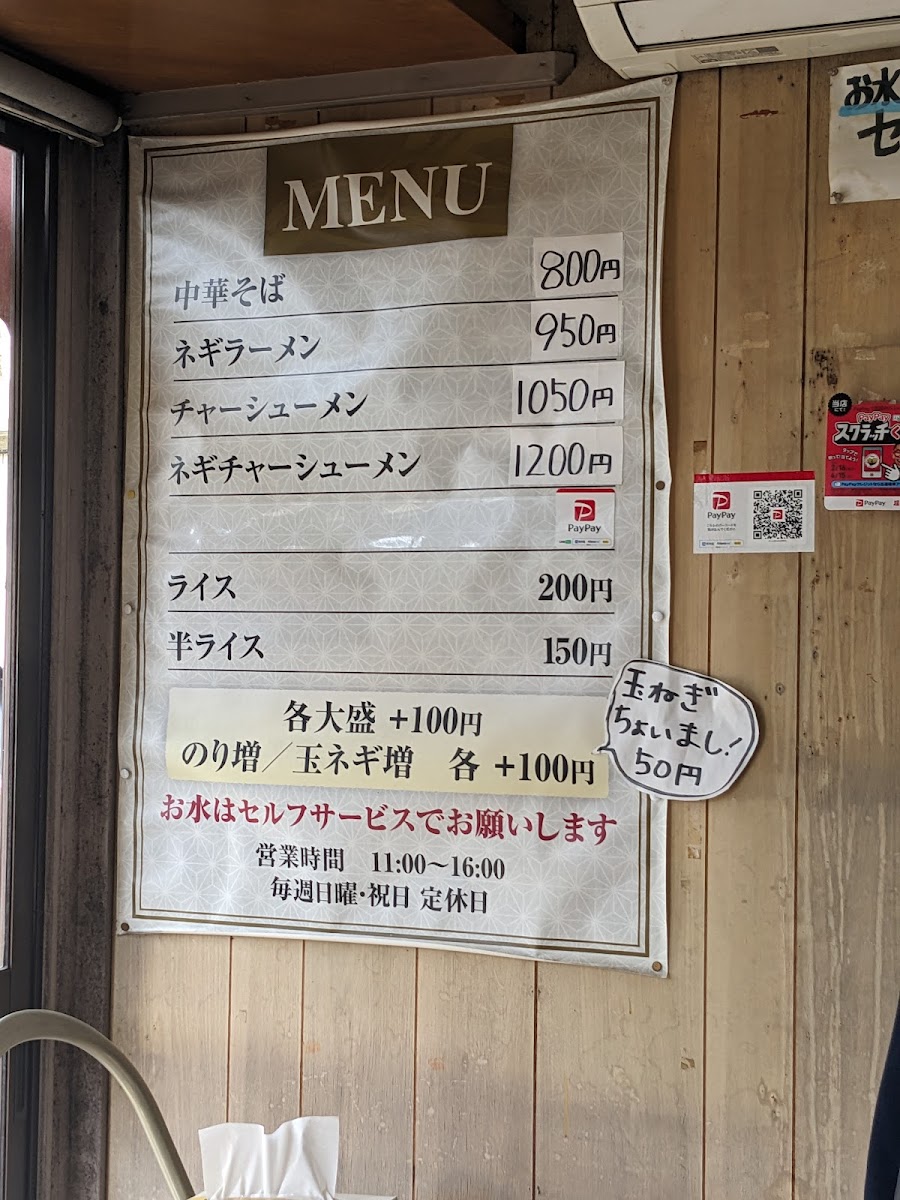 MENU
中華そば 800円
ネギラーメン 950円
チャーシューメン 1050円
ネギチャーシューメン 1200円
PayPay
ライス 200円
半ライス 150円
各大盛 +100円
のり増／玉ネギ増 各 +100円
玉ねぎ
ちょいまし!
50円
お水はセルフサービスでお願いします
営業時間 11:00〜16:00
毎週日曜・祝日 定休日
お水
セ
PayPay
当店
にて!
PayPay
スクラッチく
PayPay